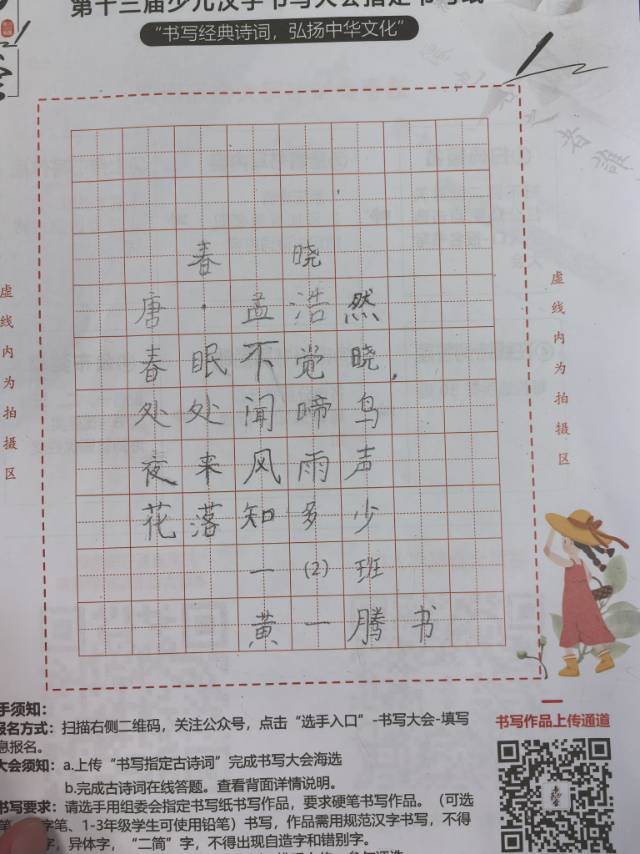 第十三届少儿汉字书写大会指定书写纸
“书写经典诗词，弘扬中华文化”
春 晓
唐·孟浩然
春眠不觉晓，
处处闻啼鸟
夜来风雨声
花落知多少
一（2）班
黄一腾书
虚线内为拍摄区
虚线内为拍摄区
手须知：
报名方式：扫描右侧二维码，关注公众号，点击“选手入口”-书写大会-填写
息报名。
大会须知：a.上传“书写指定古诗词”完成书写大会海选
b.完成古诗词在线答题。查看背面详情说明。
书写要求：请选手用组委会指定书写纸书写作品，要求硬笔书写作品。（可选
字笔、1-3年级学生可使用铅笔）书写，作品需用规范汉字书写，不得
字，异体字，“二简”字，不得出现自造字和错别字。
书写作品上传通道